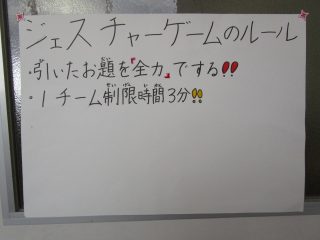 ジェスチャーゲームのルール
・引いたお題を『全力』でする!!
・1チーム制限時間3分!!